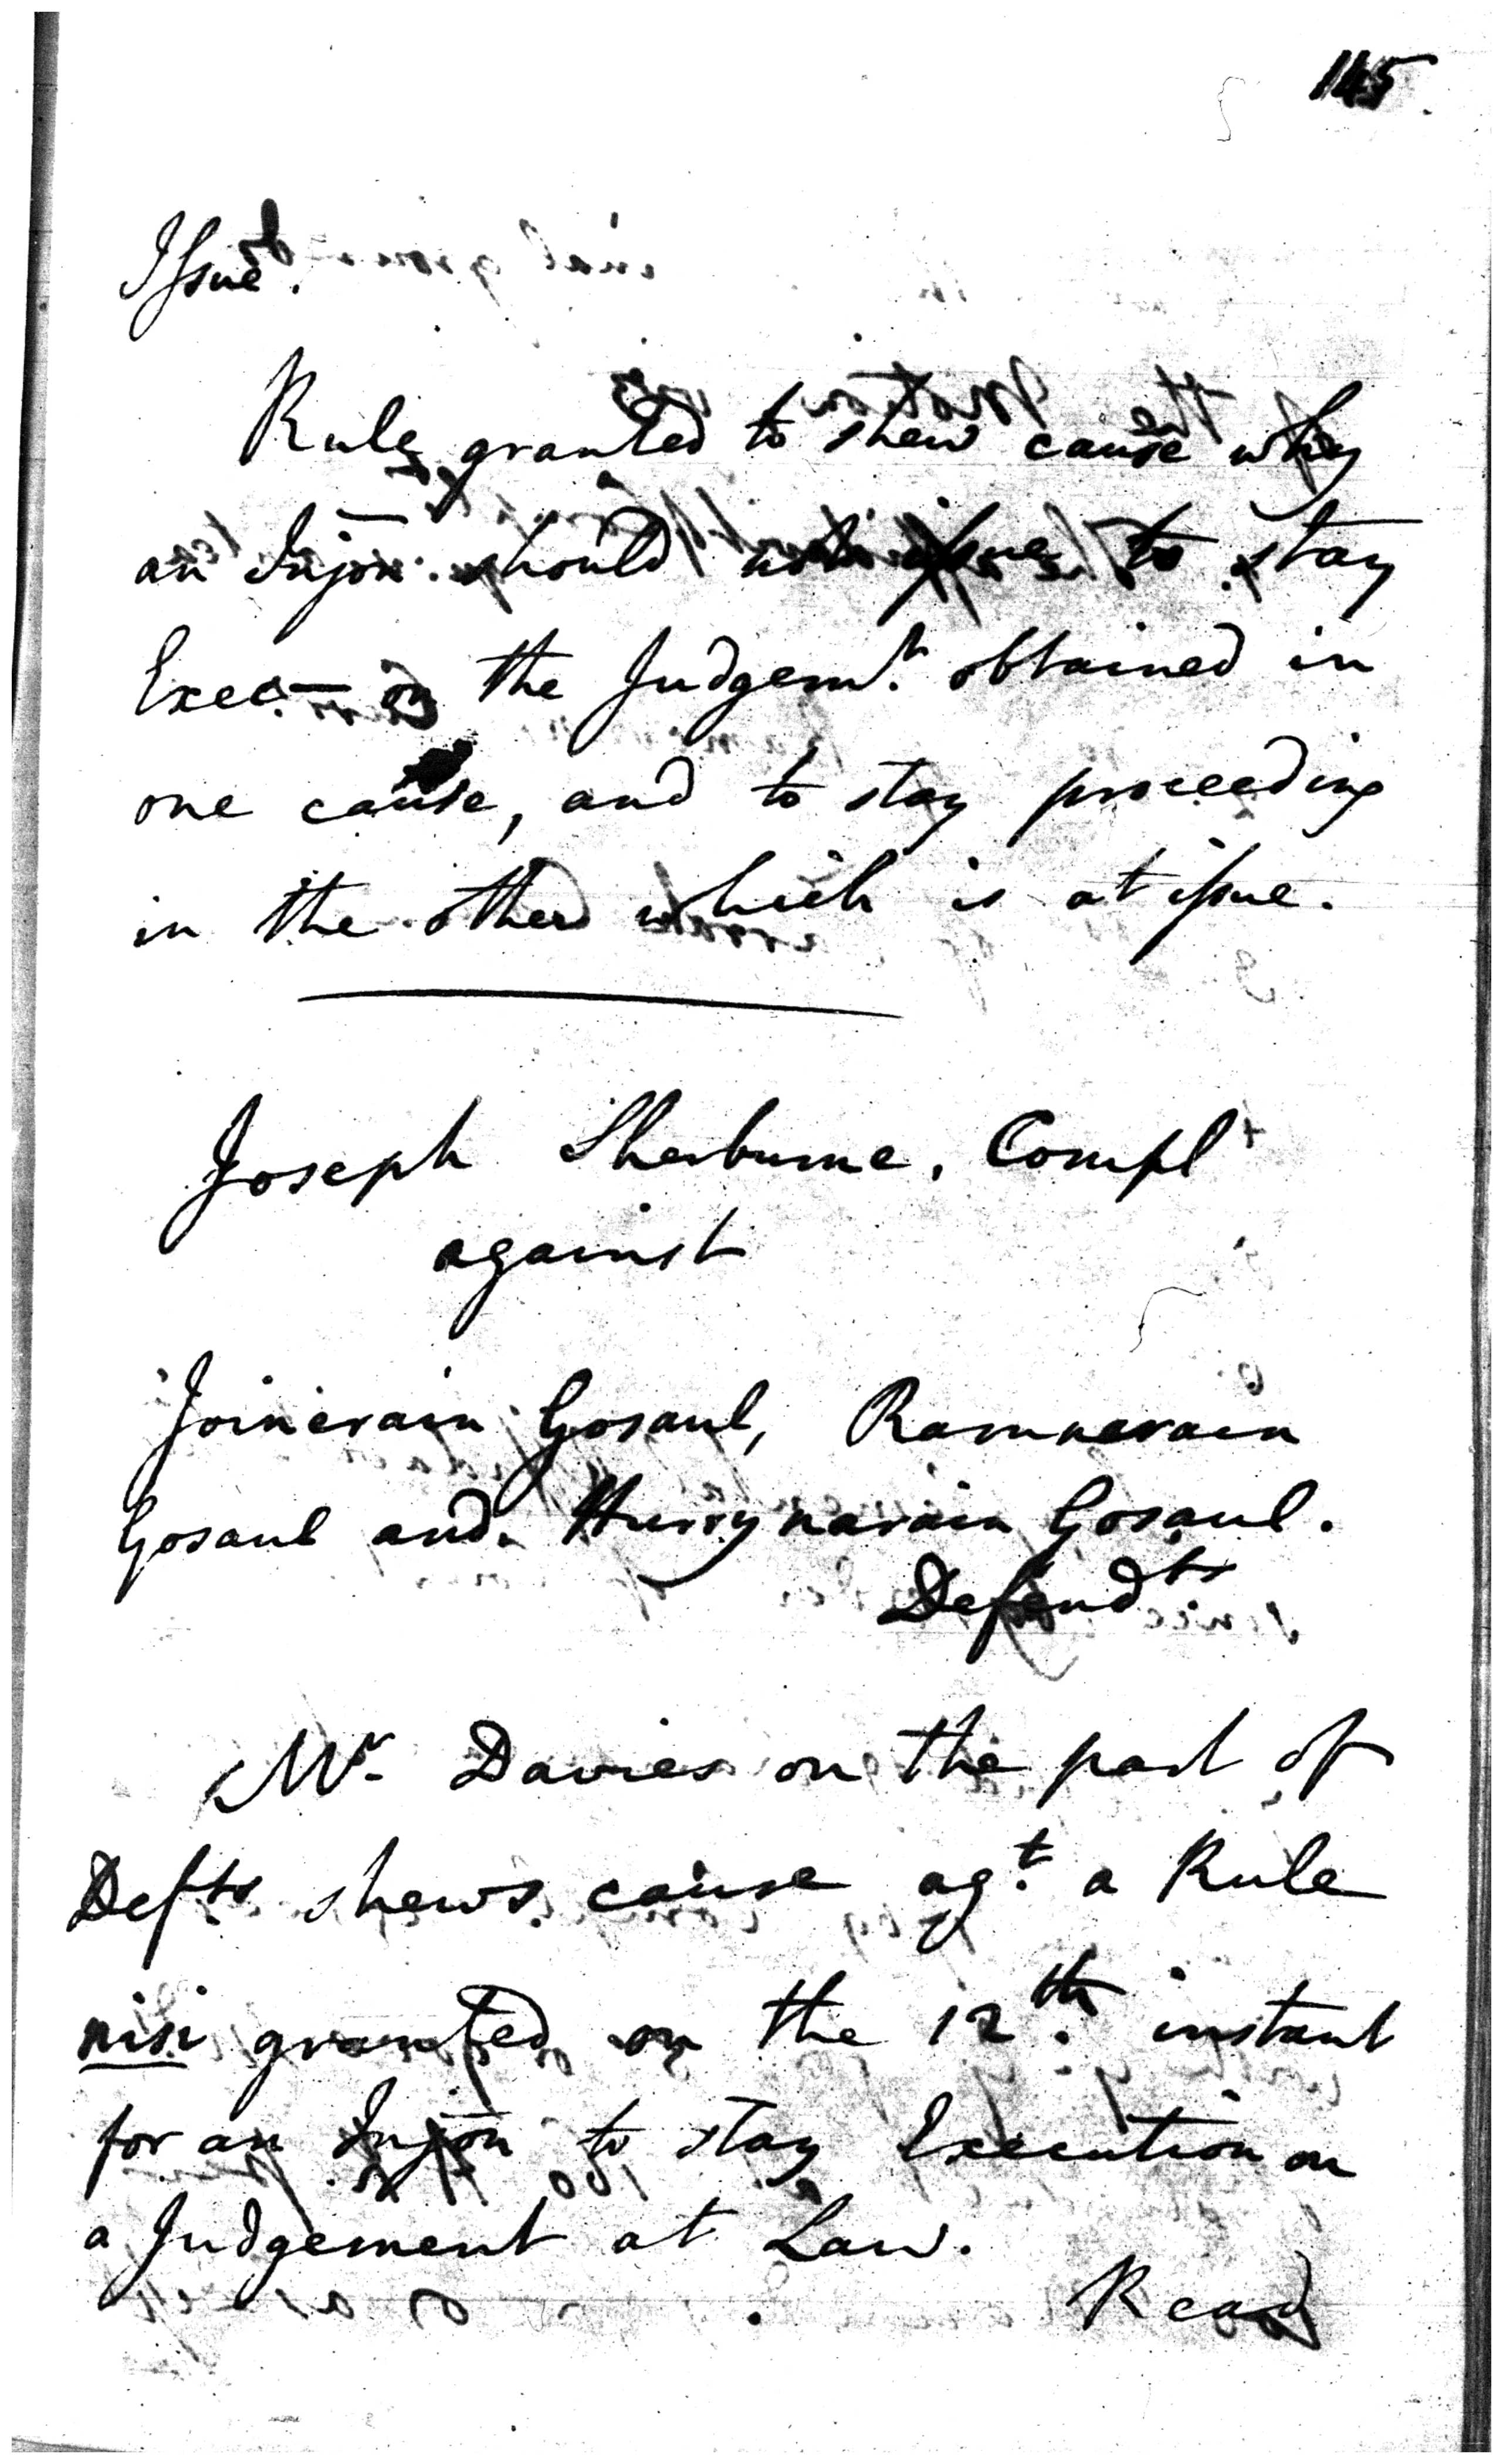 145.
Issue.
Rule granted to shew cause why
an Injōn should not issue to stay
Exec— on the Judgemt. obtained in
one cause, and to stay proceeding
in the other which is at issue.
Joseph Sherburne, Complt
against
Joinerain Gosaul, Ramnerain
Gosaul and Hurrynarain Gosaul.
Defendts
Mr. Davies on the part of
Defts shews cause agt. a Rule
nisi granted on the 12th. instant
for an Injōn to stay Execution on
a Judgement at Law.
Read